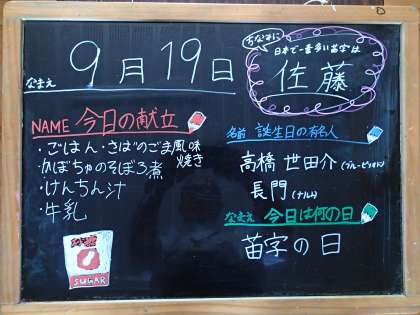 9月19日
なまえ
ちなみに
日本で一番多い苗字は
佐藤
NAME 今日の献立
・ごはん ・さばのごま風味
焼き
・かぼちゃのそぼろ煮
・けんちん汁
・牛乳
SUGAR
名前 誕生日の有名人
高橋 世田介(ブルーピリオド)
長門(ナルト)
なまえ 今日は何の日
苗字の日